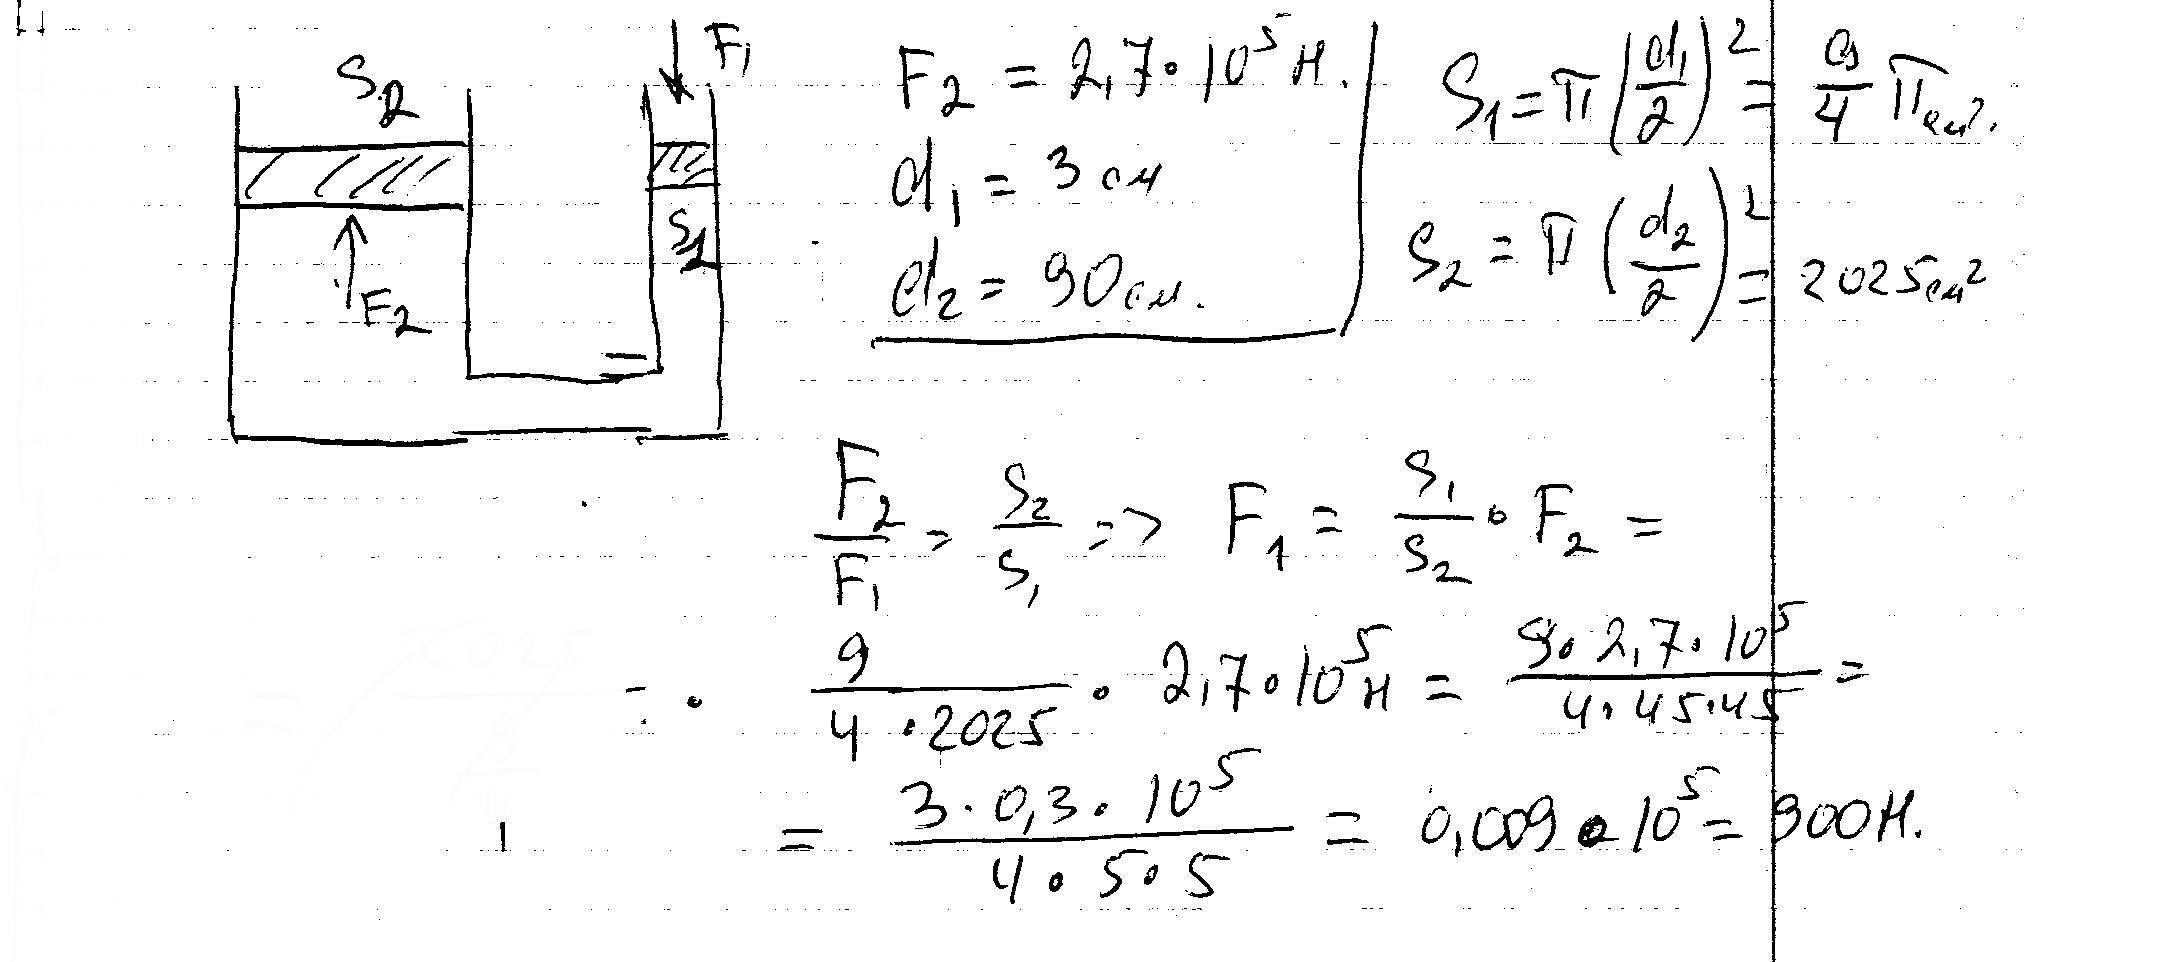 F₁
S₂
S₁
F₂
F₂ = 2,7·10⁵ Н.
d₁ = 3 см
d₂ = 90 см.
S₁ = π(d₁/2)² = 9/4 π см².
S₂ = π(d₂/2)² = 2025 см²
F₂/F₁ = S₂/S₁ => F₁ = S₁/S₂ · F₂ =
= · 9/(4·2025) · 2,7·10⁵ Н = 9·2,7·10⁵/(4·45·45) =
= 3·0,3·10⁵/(4·5·5) = 0,009·10⁵ = 900Н.